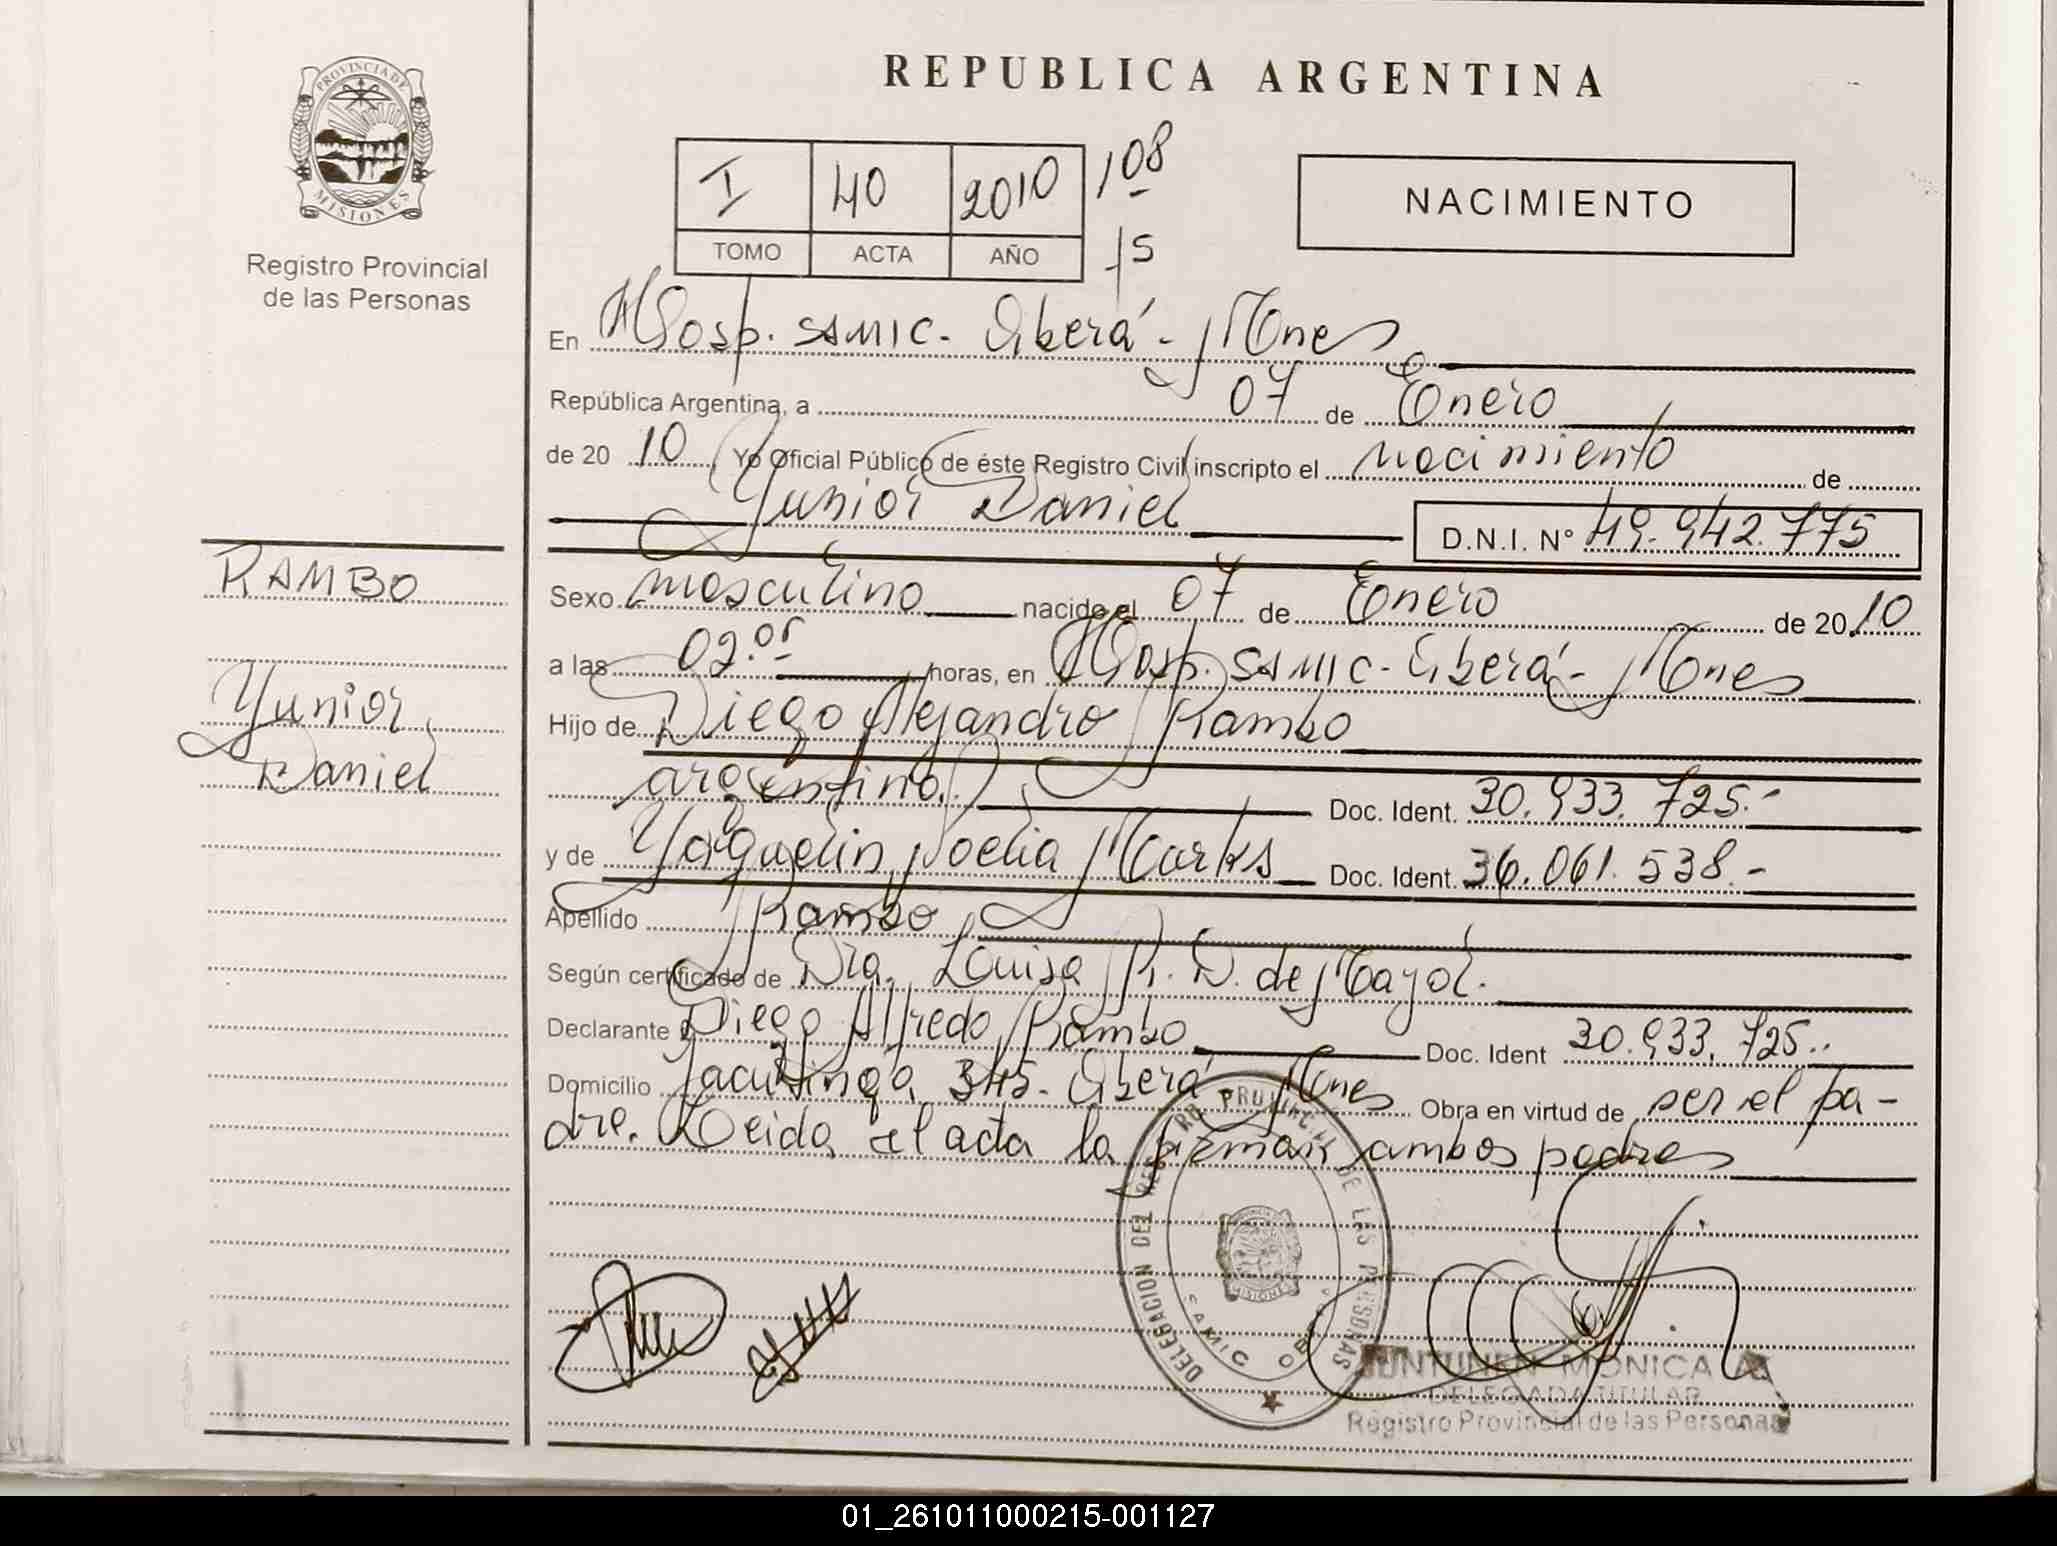 PROVINCIA DE
MISIONES
Registro Provincial
de las Personas
REPUBLICA ARGENTINA
I 40 2010 108
TOMO ACTA AÑO 15
NACIMIENTO
En Hosp. SAMIC - Oberá - Mnes
República Argentina, a 07 de Enero
de 20 10 Yo Oficial Público de éste Registro Civil inscripto el nacimiento de
Yunior Daniel D.N.I. Nº 49.942.775
RAMBO
Yunior
Daniel
Sexo masculino nacido el 07 de Enero de 20 10
a las 02.05 horas, en Hosp. SAMIC - Oberá - Mnes
Hijo de Diego Alejandro Rambo
argentino. Doc. Ident. 30.933.725.-
y de Yaquelin Noelia Marks Doc. Ident. 36.061.538.-
Apellido Rambo
Según certificado de Dra. Louisa R. D. de Mayol.
Declarante Diego Alfredo Rambo Doc. Ident 30.933.725..
Domicilio Jacutinga 345 - Oberá Mnes Obra en virtud de ser el pa-
dre. Leida el acta la firman ambos padres
DELEGACION DEL REGISTRO PROVINCIAL DE LAS PERSONAS
MISIONES
SAMIC
MONICA A
DELEGADA TITULAR
Registro Provincial de las Personas
01_261011000215-001127